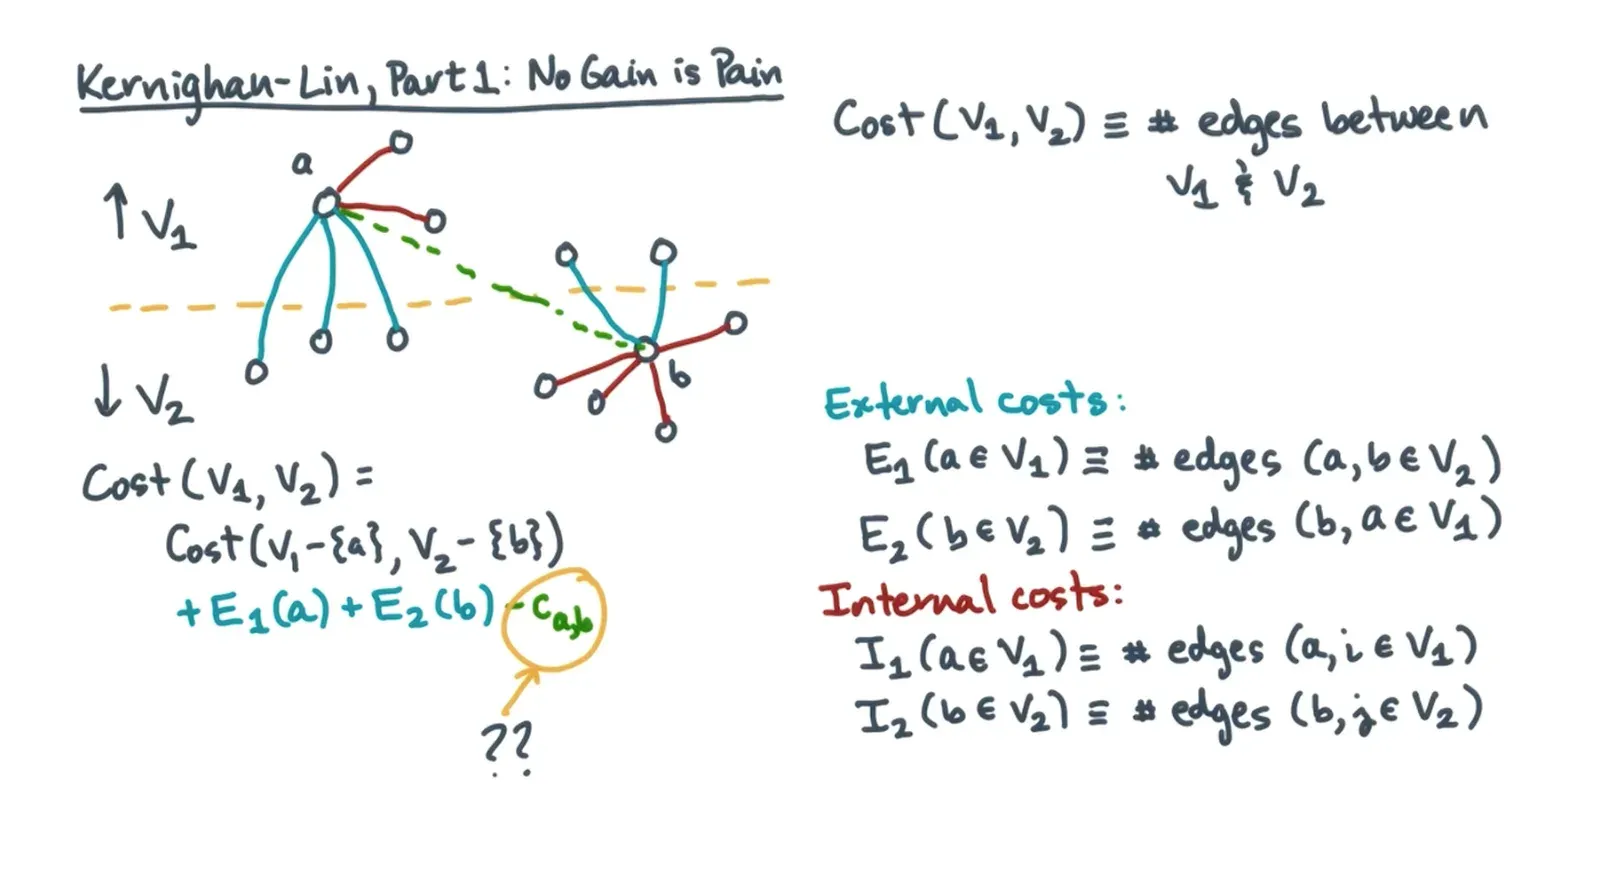 Kernighan-Lin, Part 1: No Gain is Pain
a
↑ V₁
↓ V₂
b
Cost (V₁, V₂) =
Cost (V₁ - {a}, V₂ - {b})
+ E₁(a) + E₂(b) - c_{a,b}
??
Cost (V₁, V₂) ≡ # edges between
V₁ & V₂
External costs:
E₁ (a ∈ V₁) ≡ # edges (a, b ∈ V₂)
E₂ (b ∈ V₂) ≡ # edges (b, a ∈ V₁)
Internal costs:
I₁ (a ∈ V₁) ≡ # edges (a, i ∈ V₁)
I₂ (b ∈ V₂) ≡ # edges (b, j ∈ V₂)